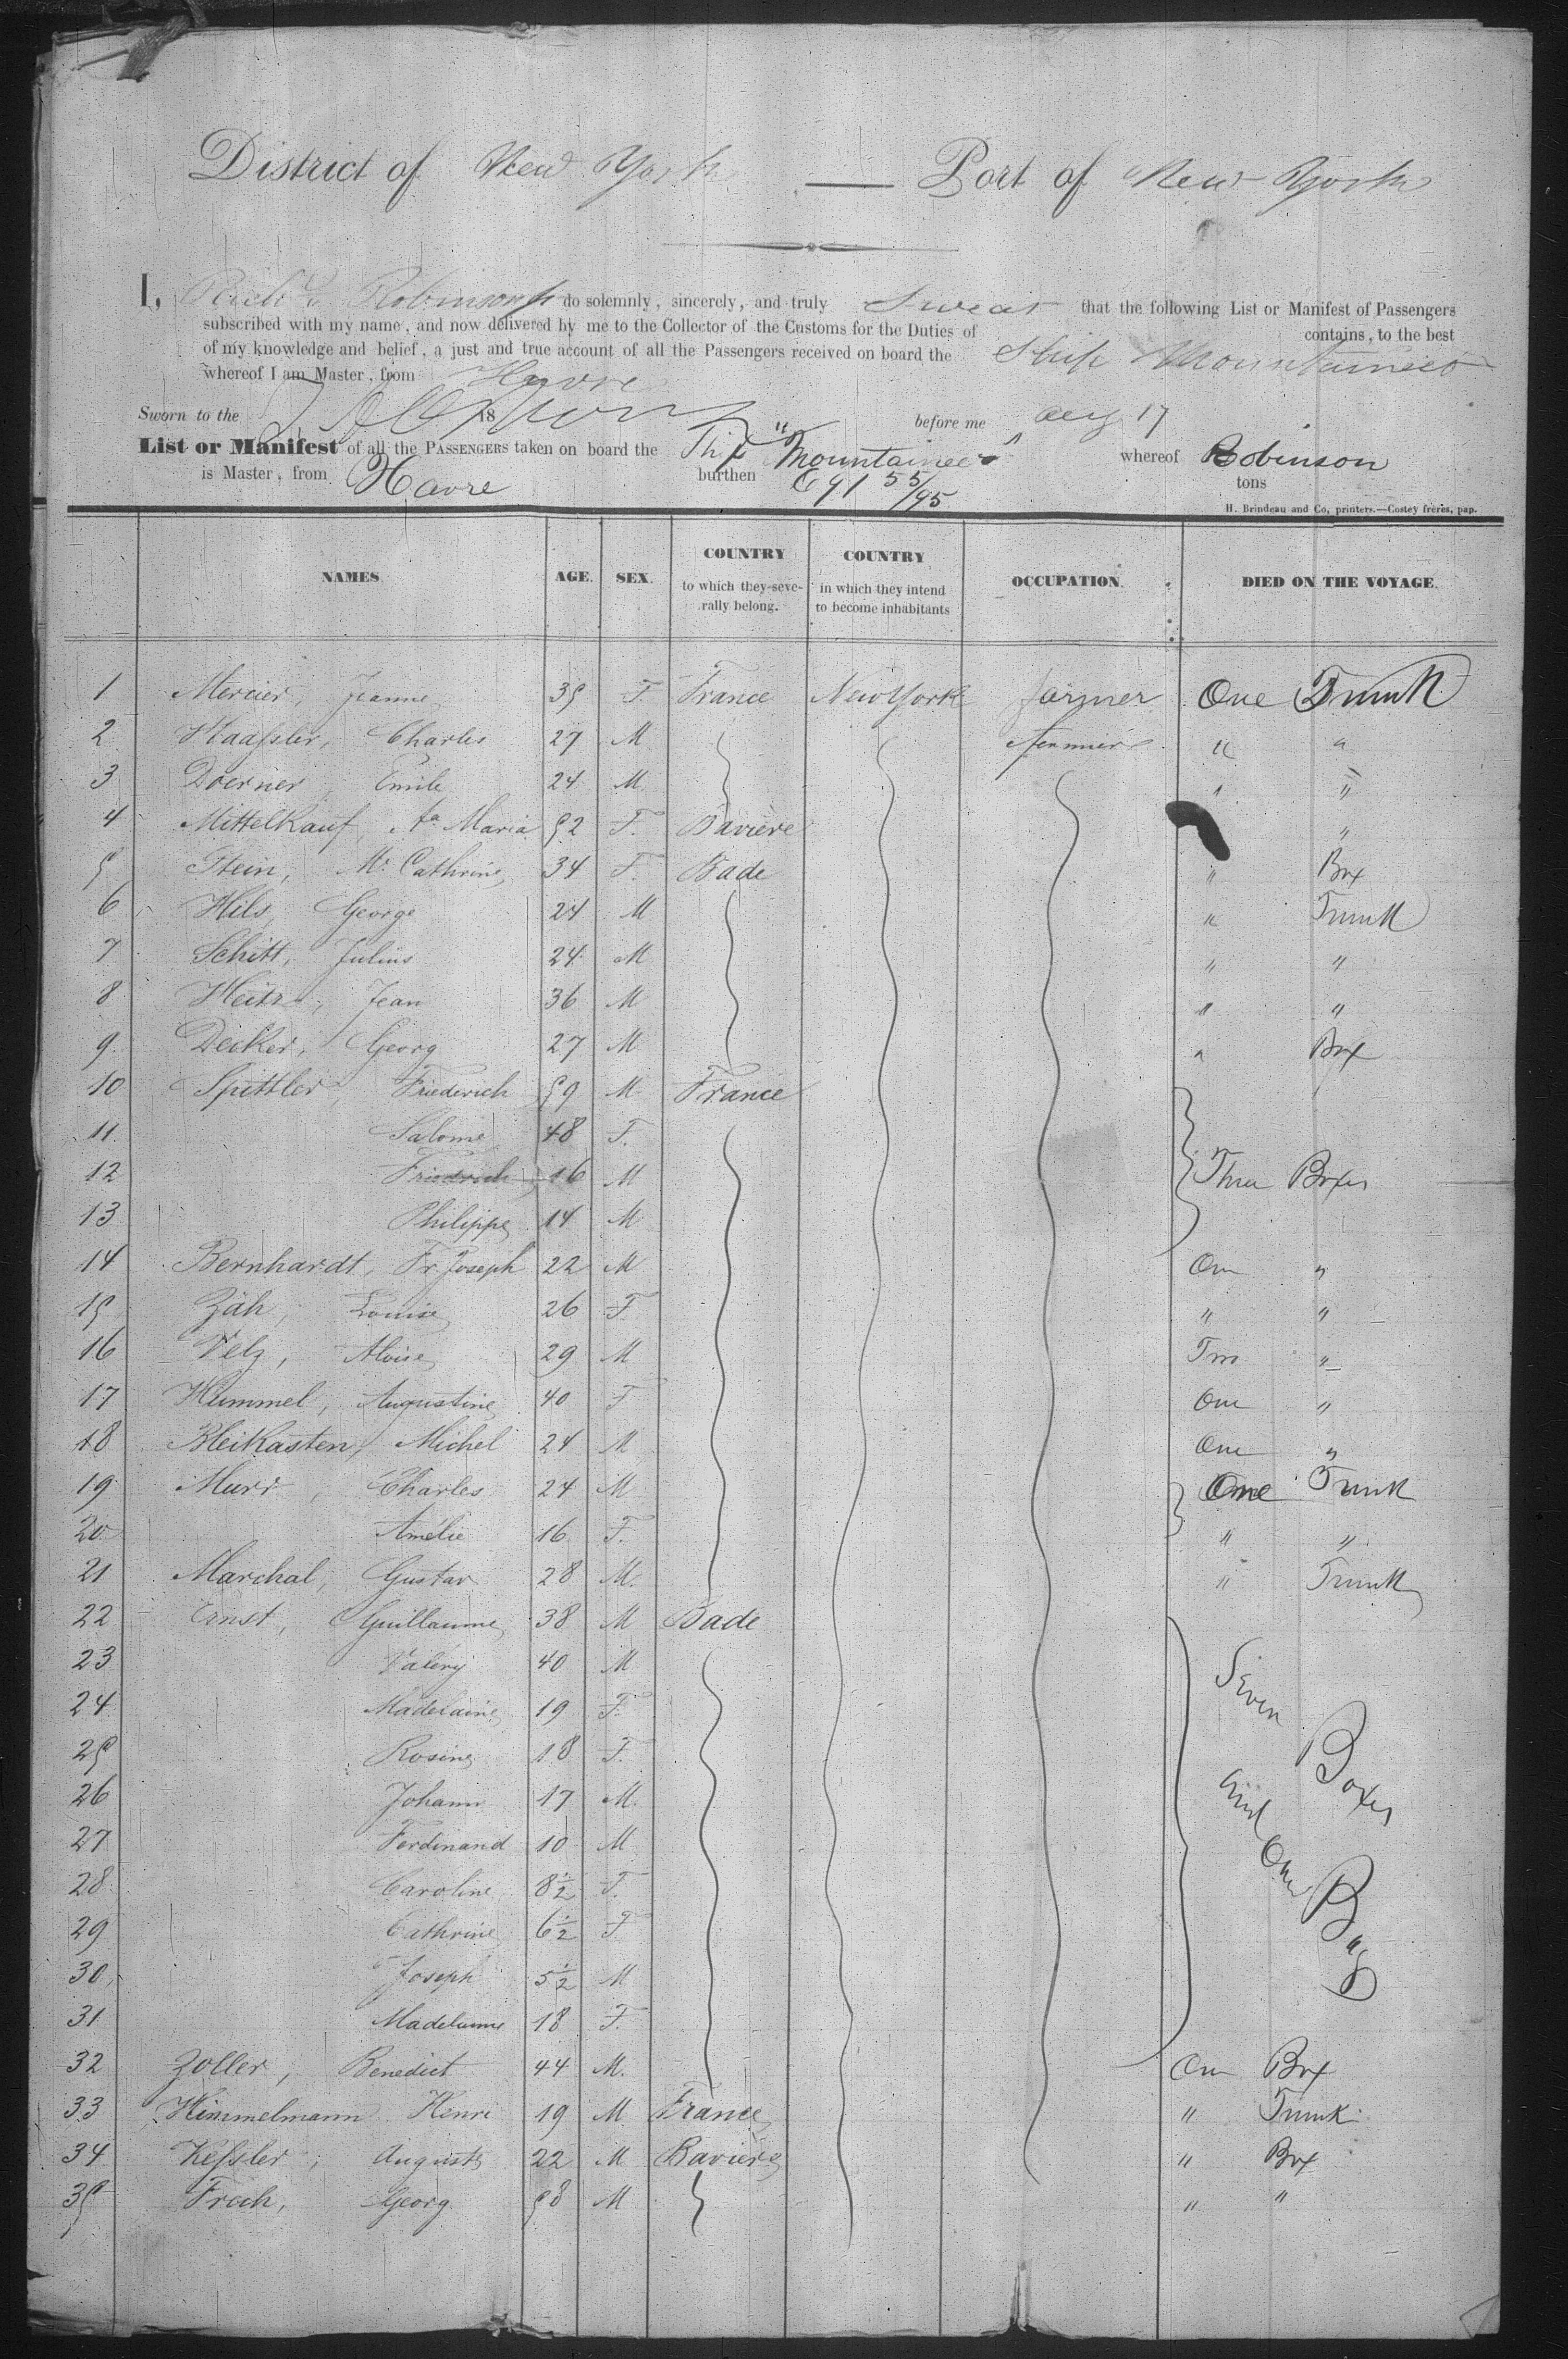 District of New York — Port of New York
I, Robinson do solemnly, sincerely, and truly Swear that the following List or Manifest of Passengers
subscribed with my name, and now delivered by me to the Collector of the Customs for the Duties of contains, to the best
of my knowledge and belief, a just and true account of all the Passengers received on board the Ship Mountaineer
whereof I am Master, from Havre
Sworn to the 18 before me Aug 17
List or Manifest of all the PASSENGERS taken on board the Ship "Mountaineer" whereof Robinson
is Master, from Havre burthen 691 55/95 tons
H. Brindeau and Co, printers.—Costey frères, pap.
NAMES AGE. SEX. COUNTRY to which they severally belong. COUNTRY in which they intend to become inhabitants OCCUPATION. DIED ON THE VOYAGE.
1 Mercier, Jeanne 35 F. France New York farmer One Trunk
2 Haassler, Charles 27 M " "
3 Doerner, Emile 24 M " "
4 Mittelkauf, Aa Maria 52 F. Bavière "
5 Stein, M. Cathrine 34 F. Bade " Box
6 Hils, George 24 M " Trunk
7 Schitt, Julius 24 M " "
8 Heitz, Jean 36 M " "
9 Decker, Georg 27 M " Box
10 Spittler, Friederich 59 M France
11 Salome 48 F.
12 Friedrich 16 M Three Boxes
13 Philippe 14 M
14 Bernhardt, Fr. Joseph 22 M One "
15 Zäh, Louise 26 F. " "
16 Velz, Aloise 29 M Two "
17 Hummel, Augustine 40 F One "
18 Bleikasten, Michel 24 M One "
19 Murr, Charles 24 M One Trunk
20 Amélie 16 F. " "
21 Marchal, Gustav 28 M. " Trunk
22 Ernst, Guillaume 38 M Bade
23 Valery 40 M Seven
24 Madelaine 19 F.
25 Rosine 18 F. Boxes
26 Johann 17 M. and
27 Ferdinand 10 M One
28 Caroline 8½ F. Bag
29 Cathrine 6½ F
30 Joseph 5½ M
31 Madelaine 18 F.
32 Zoller, Benedict 44 M. One Box
33 Himmelmann Henri 19 M France " Trunk
34 Kessler, Auguste 22 M Bavière " Box
35 Froh, Georg 58 M " "